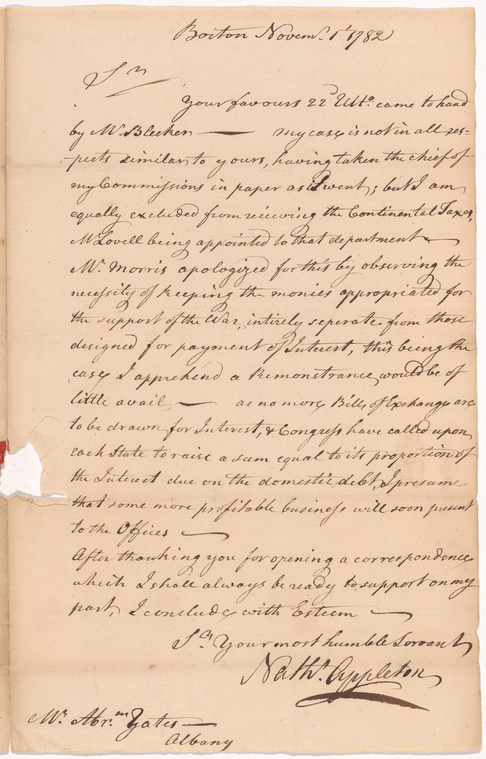 Boston Novemr. 1st 1782
Sir
Your favour 22d Ulto. came to hand
by Mr. Bleeker — my case is not in all res-
-pects similar to yours, having taken the chief of
my Commissions in paper as it went; but I am
equally excluded from receiving the Continental Taxes,
Mr Lovell being appointed to that department —
Mr. Morris apologized for this by observing the
necessity of keeping the monies appropriated for
the support of the War, intirely seperate from those
designed for payment of Interest, this being the
case, I apprehend a Remonstrance would be of
little avail — as no more Bills of Exchange are
to be drawn for Interest, & Congress have called upon
each State to raise a sum equal to its proportion of
the Interest due on the domestic debt I presume
that some more profitable business will soon present
to the Offices —
After thanking you for opening a correspondence
which I shall always be ready to support on my
part, I conclude with Esteem —
Sr. Your most humble Servant
Nathl. Appleton
Mr. Abrm. Yates —
Albany